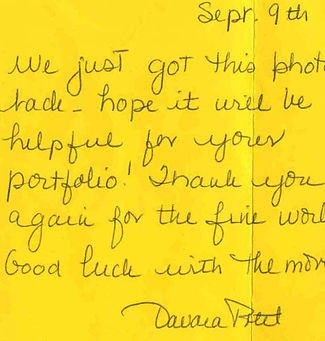 Sept. 9th
We just got this phot
back - hope it will be
helpful for your
portfolio! Thank you
again for the fine wor
Good luck with the mo